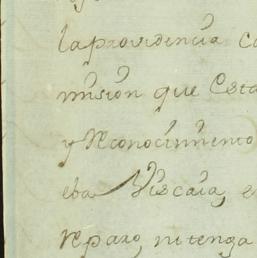 la providencia co
mision que Esta
y Reconocimiento
eba Viscaia, e
reparo, ni tenga